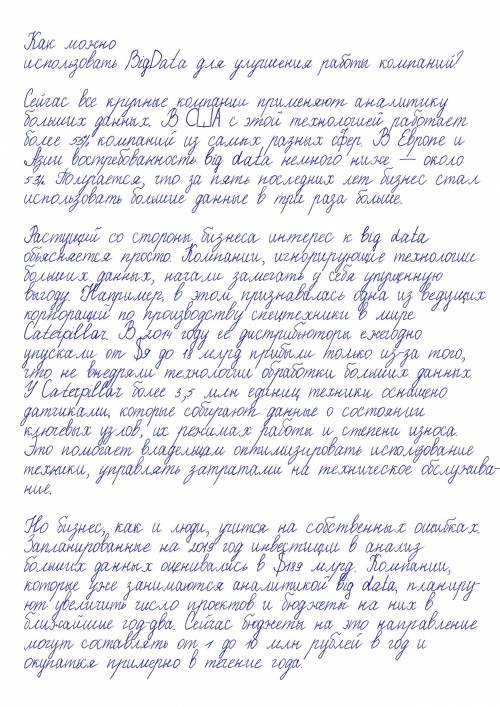 Как можно
использовать BigData для улучшения работы компаний?
Сейчас все крупные компании применяют аналитику
больших данных. В США с этой технологией работает
более 55% компаний из самых разных сфер. В Европе и
Азии востребованность big data немного ниже — около
53%. Получается, что за пять последних лет бизнес стал
использовать большие данные в три раза больше.
Растущий со стороны бизнеса интерес к big data
объясняется просто. Компании, игнорирующие технологии
больших данных, начали замечать у себя упущенную
выгоду. Например, в этом признавалась одна из ведущих
корпораций по производству спецтехники в мире
Caterpillar. В 2014 году ее дистрибьюторы ежегодно
упускали от $9 до 18 млрд прибыли только из-за того,
что не внедряли технологии обработки больших данных.
У Caterpillar более 3,5 млн единиц техники оснащено
датчиками, которые собирают данные о состоянии
ключевых узлов, их режимах работы и степени износа.
Это помогает владельцам оптимизировать использование
техники, управлять затратами на техническое обслужива-
ние.
Но бизнес, как и люди, учится на собственных ошибках.
Запланированные на 2019 год инвестиции в анализ
больших данных оценивались в $189 млрд. Компании,
которые уже занимаются аналитикой big data, планиру-
ют увеличить число проектов и бюджеты на них в
ближайшие год-два. Сейчас бюджеты на это направление
могут составлять от 1 до 10 млн рублей в год и
окупаться примерно в течение года.